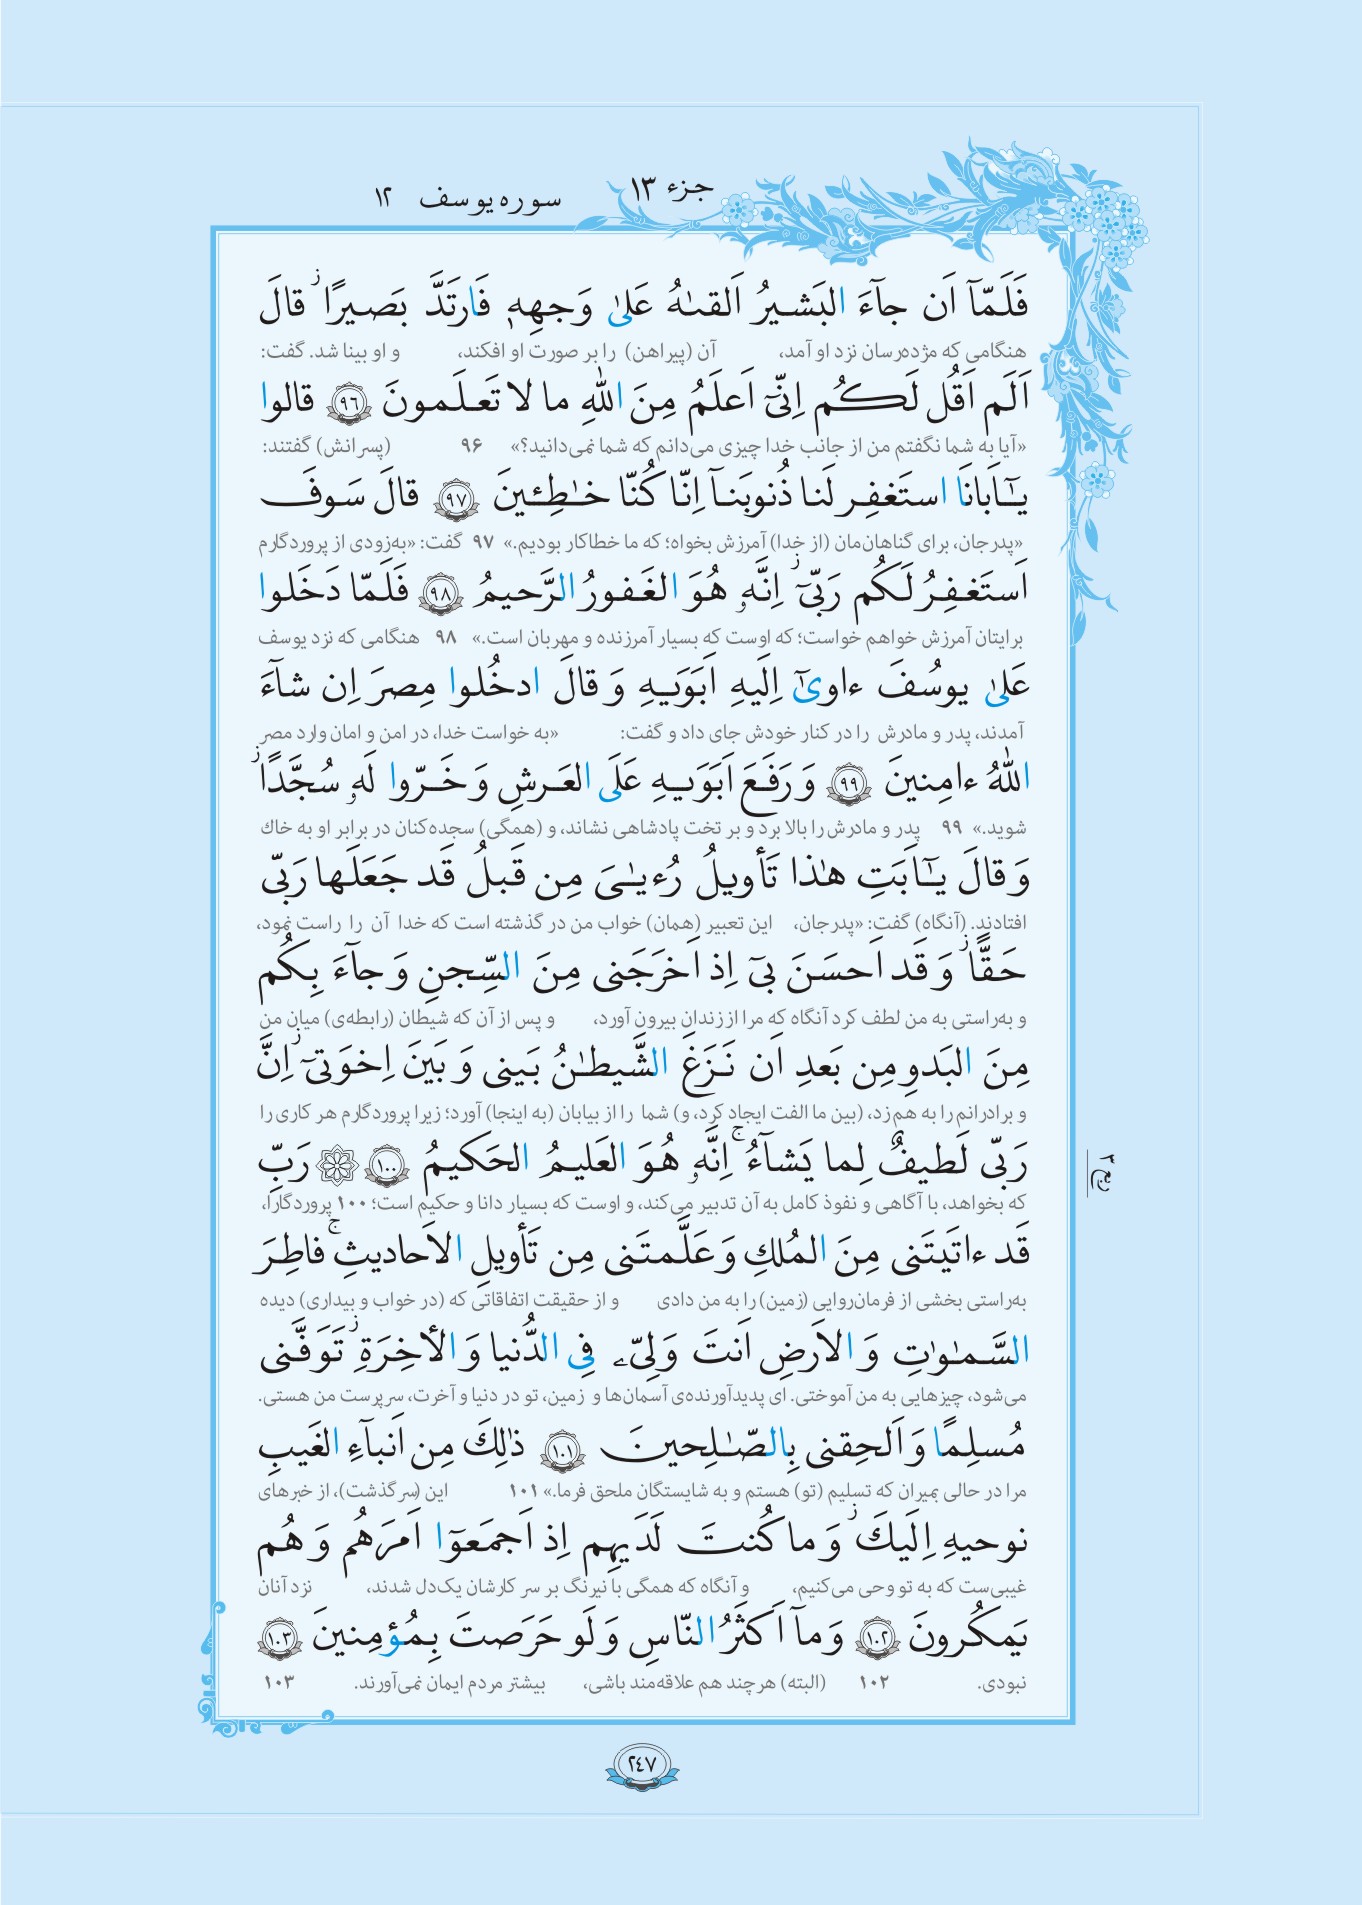 جزء ۱۳
سوره یوسف ۱۲
فَلَمّآ اَن جآءَ البَشيرُ اَلقىٰهُ عَلىٰ وَجهِهٖ فَارتَدَّ بَصيرًاۖ قالَ
هنگامی که مژده‌رسان نزد او آمد، آن (پیراهن) را بر صورت او افکند، و او بینا شد. گفت:
اَلَم اَقُل لَكُم اِنّىٓ اَعلَمُ مِنَ اللّٰهِ ما لا تَعلَمونَ ﴿٩٦﴾ قالوا
«آیا به شما نگفتم من از جانب خدا چیزی می‌دانم که شما نمی‌دانید؟» ۹۶ (پسرانش) گفتند:
يـٰٓاَبانَا استَغفِر لَنا ذُنوبَنآ اِنّا كُنّا خـٰطِـٔينَ ﴿٩٧﴾ قالَ سَوفَ
«پدرجان، برای گناهان‌مان (از خدا) آمرزش بخواه؛ که ما خطاکار بودیم.» ۹۷ گفت: «به‌زودی از پروردگارم
اَستَغفِرُ لَكُم رَبّىٓ اِنَّهٗ هُوَ الغَفورُ الرَّحيمُ ﴿٩٨﴾ فَلَمّا دَخَلوا
برایتان آمرزش خواهم خواست؛ که اوست که بسیار آمرزنده و مهربان است.» ۹۸ هنگامی که نزد یوسف
عَلىٰ يوسُفَ ءاوىٰٓ اِلَيهِ اَبَوَيهِ وَ قالَ ادخُلوا مِصرَ اِن شآءَ
آمدند، پدر و مادرش را در کنار خودش جای داد و گفت: «به خواست خدا، در امن و امان وارد مصر
اللّٰهُ ءامِنينَ ﴿٩٩﴾ وَ رَفَعَ اَبَوَيهِ عَلَى العَرشِ وَ خَرّوا لَهٗ سُجَّدًا
شوید.» ۹۹ پدر و مادرش را بالا برد و بر تخت پادشاهی نشاند، و (همگی) سجده‌کنان در برابر او به خاك
وَ قالَ يـٰٓاَبَتِ هـٰذا تَأويلُ رُءيـٰىَ مِن قَبلُ قَد جَعَلَها رَبّى
افتادند. (آنگاه) گفت: «پدرجان، این تعبیر (همان) خواب من در گذشته است که خدا آن را راست نمود،
حَقًّا وَ قَد اَحسَنَ بىٓ اِذ اَخرَجَنى مِنَ السِّجنِ وَ جآءَ بِكُم
و به‌راستی به من لطف کرد آنگاه که مرا از زندان بیرون آورد، و پس از آن که شیطان (رابطه‌ی) میان من
مِنَ البَدوِ مِن بَعدِ اَن نَزَغَ الشَّيطـٰنُ بَينى وَ بَينَ اِخوَتىٓ اِنَّ
و برادرانم را به هم زد، (بین ما الفت ایجاد کرد، و) شما را از بیابان (به اینجا) آورد؛ زیرا پروردگارم هر کاری را
رَبّى لَطيفٌ لِما يَشآءُ اِنَّهٗ هُوَ العَليمُ الحَكيمُ ﴿١٠٠﴾ رَبِّ
که بخواهد، با آگاهی و نفوذ کامل به آن تدبیر می‌کند، و اوست که بسیار دانا و حکیم است؛ ۱۰۰ پروردگارا،
قَد ءاتَيتَنى مِنَ المُلكِ وَ عَلَّمتَنى مِن تَأويلِ الاَحاديثِ فاطِرَ
به‌راستی بخشی از فرمان‌روایی (زمین) را به من دادی و از حقیقت اتفاقاتی که (در خواب و بیداری) دیده
السَّمـٰوٰتِ وَ الاَرضِ اَنتَ وَلِىّٖ فِى الدُّنيا وَ الأخِرَةِ تَوَفَّنى
می‌شود، چیزهایی به من آموختی. ای پدیدآورنده‌ی آسمان‌ها و زمین، تو در دنیا و آخرت، سرپرست من هستی.
مُسلِمًا وَ اَلحِقنى بِالصّـٰلِحينَ ﴿١٠١﴾ ذٰلِكَ مِن اَنبآءِ الغَيبِ
مرا در حالی بمیران که تسلیم (تو) هستم و به شایستگان ملحق فرما.» ۱۰۱ این (سرگذشت)، از خبرهای
نوحيهِ اِلَيكَ وَ ما كُنتَ لَدَيهِم اِذ اَجمَعوٓا اَمرَهُم وَ هُم
غیبی‌ست که به تو وحی می‌کنیم، و آنگاه که همگی با نیرنگ بر سر کارشان یک‌دل شدند، نزد آنان
يَمكُرونَ ﴿١٠٢﴾ وَ مآ اَكثَرُ النّاسِ وَ لَو حَرَصتَ بِمُؤمِنينَ ﴿١٠٣﴾
نبودی. ۱۰۲ (البته) هرچند هم علاقه‌مند باشی، بیشتر مردم ایمان نمی‌آورند. ۱۰۳
ربع ۳
۲۴۷